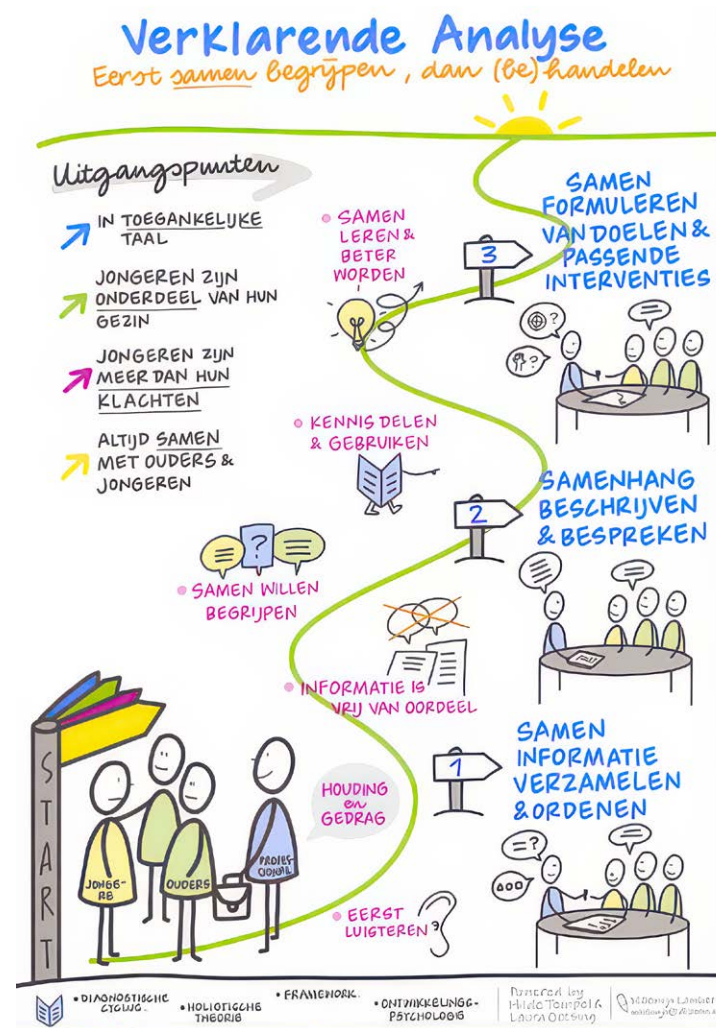 Verklarende Analyse
Eerst samen begrijpen, dan (be)handelen
Uitgangspunten
IN TOEGANKELIJKE
TAAL
JONGEREN ZIJN
ONDERDEEL VAN HUN
GEZIN
JONGEREN ZIJN
MEER DAN HUN
KLACHTEN
ALTIJD SAMEN
MET OUDERS &
JONGEREN
SAMEN
LEREN &
BETER
WORDEN
3
SAMEN
FORMULEREN
VAN DOELEN &
PASSENDE
INTERVENTIES
?
?
KENNIS DELEN
& GEBRUIKEN
2
SAMENHANG
BESCHRIJVEN
& BESPREKEN
?
SAMEN WILLEN
BEGRIJPEN
INFORMATIE IS
VRIJ VAN OORDEEL
1
SAMEN
INFORMATIE
VERZAMELEN
& ORDENEN
=?
START
HOUDING
en
GEDRAG
JONGE-
RE
OUDERS
PROFES-
SIONAL
EERST
LUISTEREN
• DIAGNOSTISCHE
CYCLUS.
• HOLISTISCHE
THEORIE
• FRAMEWORK.
• ONTWIKKELINGS-
PSYCHOLOGIE
Powered by